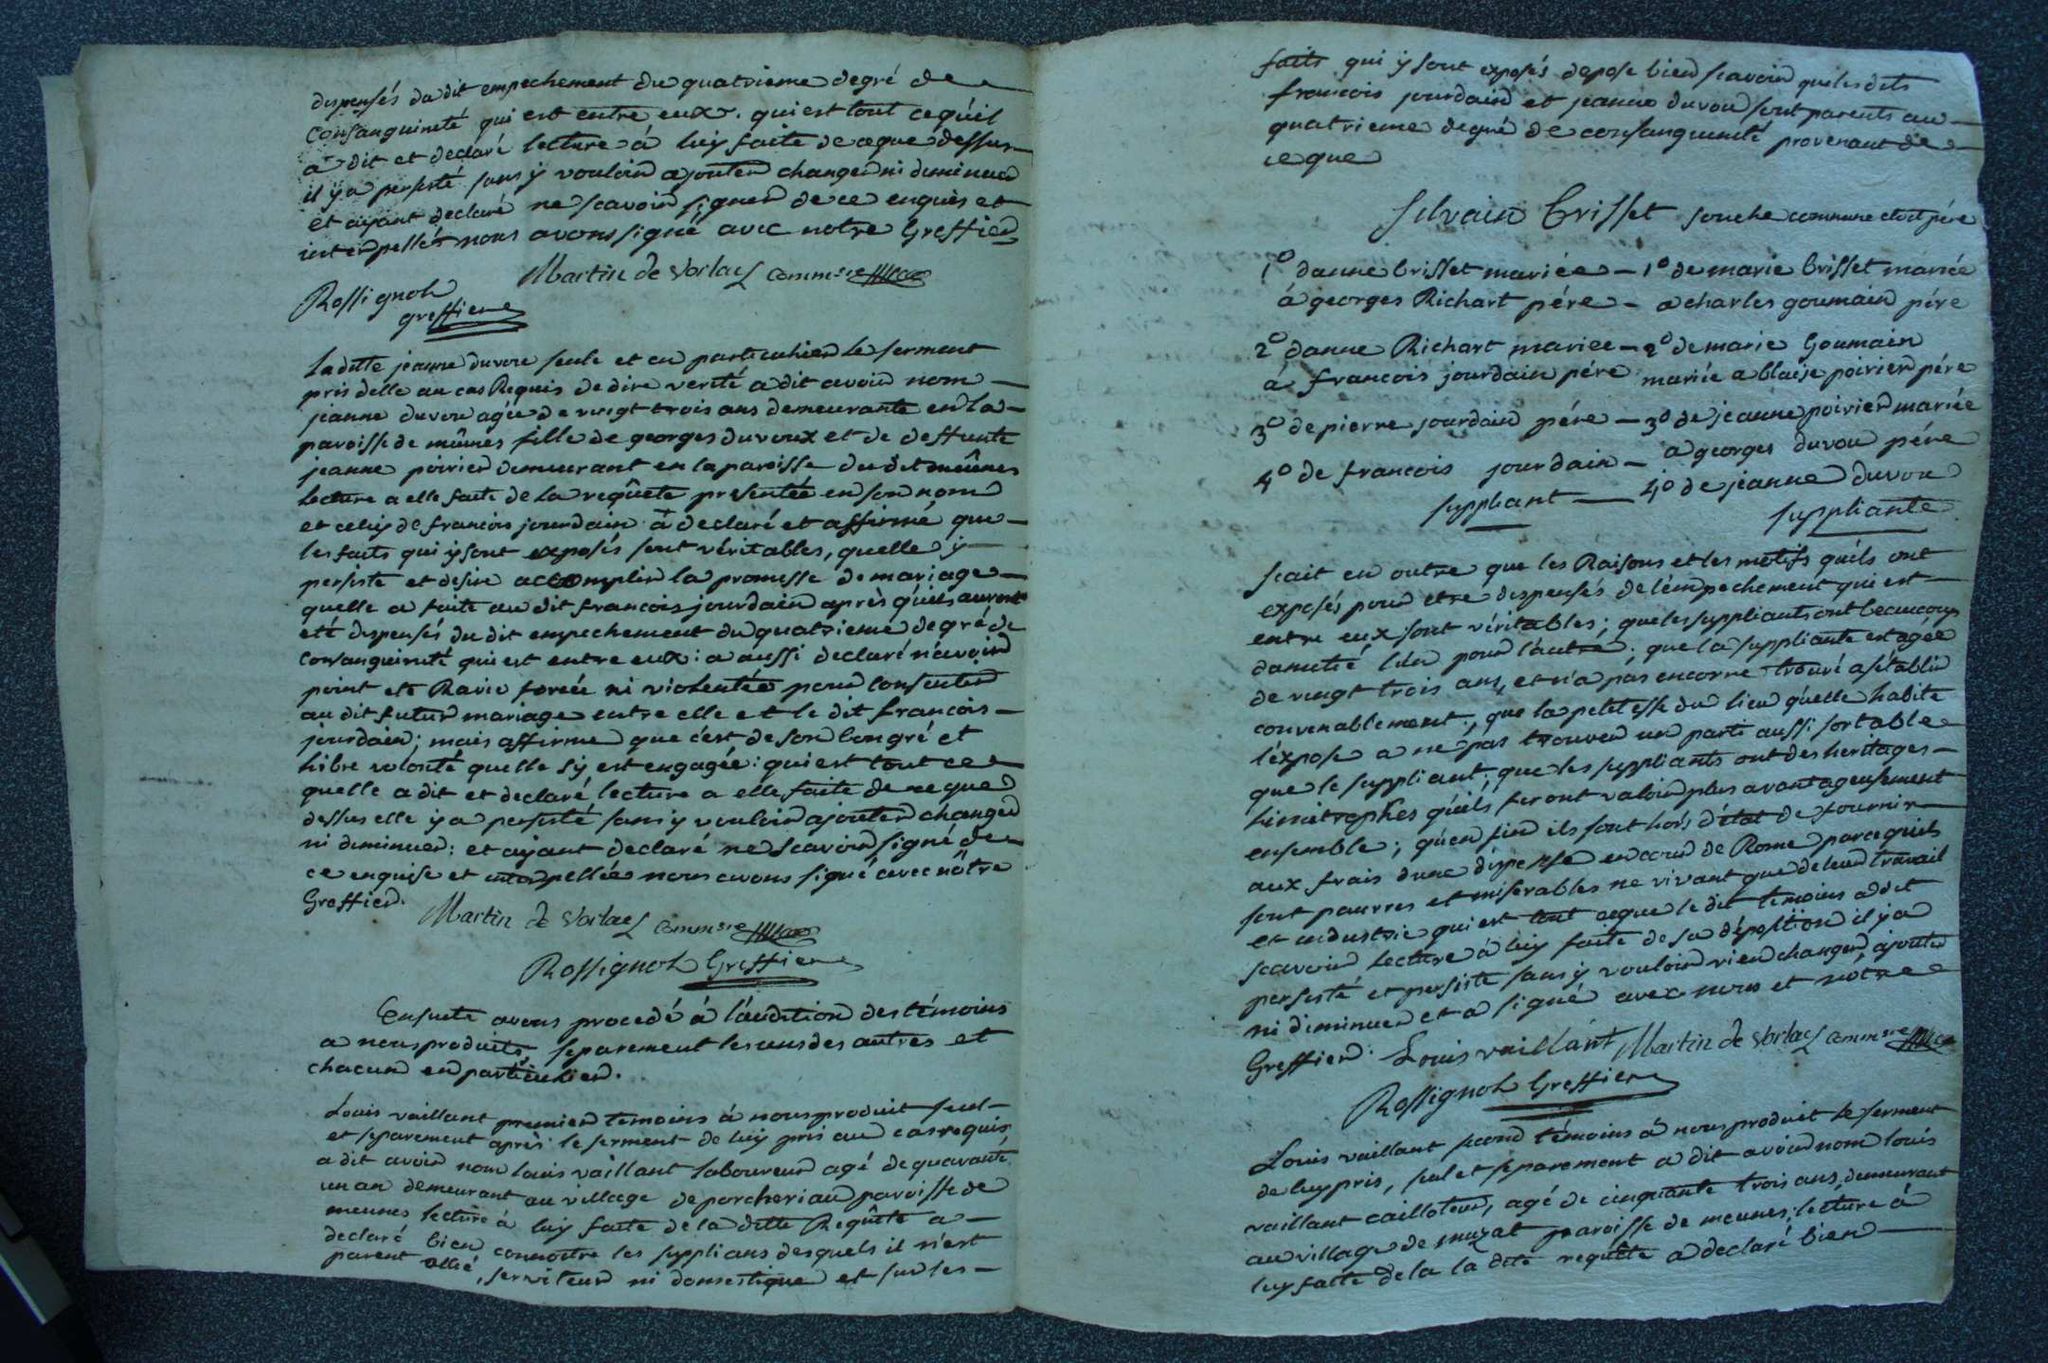 dispensés du dit empechement du quatrieme degré de
consanguineté qui est entre eux. qui est tout cequ'il
a dit et declaré lecture à luy faite de ceque dessus
il y a persisté sans y vouloir ajouter changer ni diminuer
et ayant declaré ne scavoir signer de ce enquis et
interpellés nous avons signé avec notre Greffier
Martin de Vorlac Comm.re
Rossignol
greffier
Ladite jeanne duvou seule et en particulier le serment
pris delle au cas Requis de dire verité a dit avoir nom
jeanne duvou agée de vingt trois ans demeurante en la
paroisse de mêunes fille de georges duvoux et de deffunte
jeanne poirier demeurant en la paroisse du dit mêunes
lecture a elle faite de la requête presentée en son nom
et celuy de francois jourdain à declaré et affirmé que
les faits qui y sont exposés sont véritables, quelle y
persiste et desire accomplir la promesse de mariage
quelle a faite au dit francois jourdain après qu'ils auront
eté dispensés du dit empechement du quatrieme degré de
consanguineté qui est entre eux: a aussi declaré n'avoir
point eté Ravie forcée ni violentée pour consentir
au dit futur mariage entre elle et le dit francois
jourdain; mais affirme que c'est de son bon gré et
libre volonté quelle s'y est engagée: qui est tout ce
quelle a dit et declaré lecture a elle faite de ce que
dessus elle y a persisté sans y vouloir ajouter changer
ni diminuer: et ayant declaré ne scavoir signé de
ce enquise et interpellée nous avons signé avec nôtre
Greffier.
Martin de Vorlac Comm.re
Rossignol Greffier
Ensuete avons procedé à l'audition des témoins
a nous produits, separement les uns des autres et
chacun en particulier.
Louis vaillant premier temoins à nous produit seul
et separement après le serment de luy pris au cas requis
a dit avoir nom louis vaillant laboureur agé de quarante
un an demeurant au village de porcheriau paroisse de
meunes lecture à luy faite de la ditte Requête a
declaré bien connoitre les supplians desquels il n'est
parent allié, serviteur ni domestique et sur les
faits qui y sont exposés depose bien scavoir que lesdits
francois jourdain et jeanne duvou sont parents au
quatrieme degré de consanguinité provenant de
ce que
Silvain Brisset souche commune etoit pére
1º danne brisset mariée — 1º de marie brisset mariée
à georges Richart pére — a charles goumain pére
2º danne Richart mariee — 2º de marie Goumain
à francois jourdain pére mariée a blaise poirier pére
3º de pierre jourdain pére — 3º de jeanne poirier mariée
a georges duvou pére
4º de francois jourdain — 4º de jeanne duvou
suppliant — suppliante
scait en outre que les Raisons et les motifs qu'ils ont
exposés pour etre dispensés de l'empechement qui est
entre eux sont véritables; que les suppliants ont beaucoup
damitié l'un pour l'autre; que la suppliante est agée
de vingt trois ans, et n'a pas encorre trouvé a s'établir
convenablement; que la petitesse du lieu qu'elle habite
l'éxpose a ne pas trouver un parti aussi sortable
que le suppliant; que les suppliants ont des heritages
limitrophes qu'ils feront valoir plus avantageusement
ensemble; qu'en fin ils sont hors d'état de fournir
aux frais d'une dispense en cour de Rome parcequ'ils
sont pauvres et miserables ne vivant que de leur travail
et industrie qui est tout ceque le dit temoins a dit
scavoir lecture à luy faite de sa déposition il y a
persisté et persiste sans y vouloir rien changer, ajouter
ni diminuer et a signé avec nous et notre
Greffier. Louis vaillant Martin de Vorlac Comm.re
Rossignol Greffier
Louis vaillant second témoins à nous produit le serment
de luy pris, seul et separement a dit avoir nom louis
vaillant cailloteur, agé de cinquante trois ans, demeurant
au village de muzat paroisse de meunes; lecture à
luy faite de la la dite requête a declaré bien